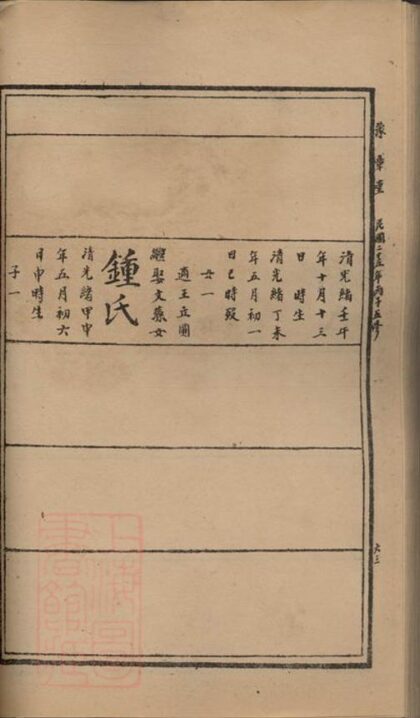 豫章堂
民國二十五年丙子五修
六三
清光緒壬午
年十月十三
日 時生
清光緒丁未
年五月初一
日巳時歿
女一
適王立圃
繼娶文藻女
鍾氏
清光緒甲申
年五月初六
日申時生
子一
上海圖
書館藏